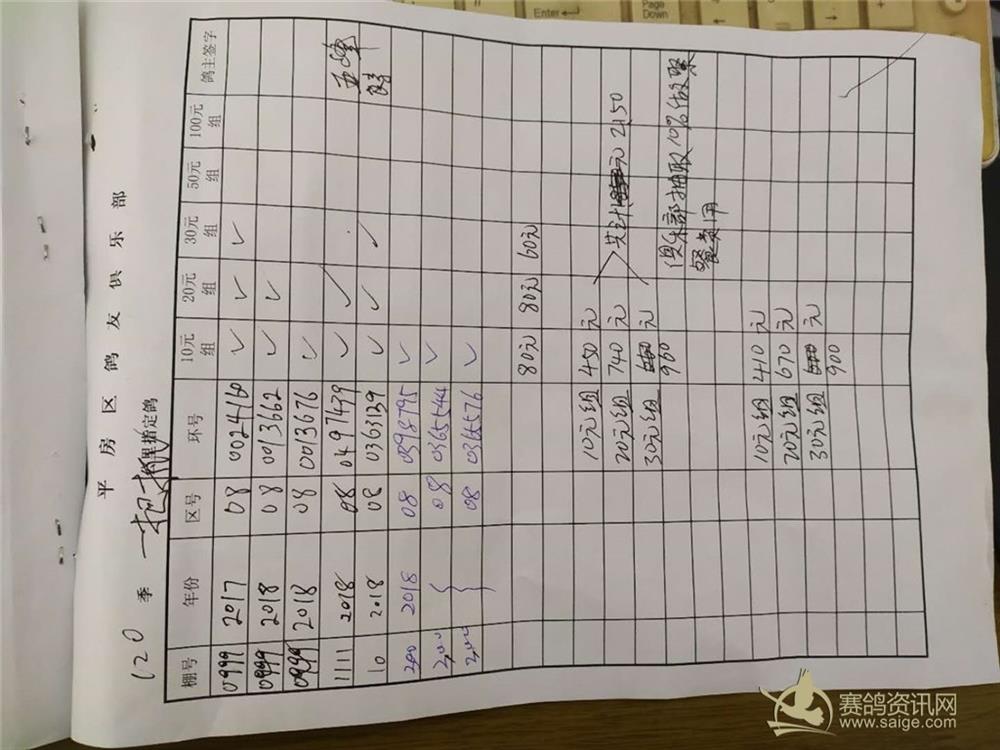 平房区鸽友俱乐部
120 季 一把抓 指定鸽
棚号 年份 区号 环号 10元组 20元组 30元组 50元组 100元组 鸽主签字
0999 2017 08 0024160 ✓ ✓ ✓
0999 2018 08 0013662 ✓ ✓
0999 2018 08 0013676 ✓
1111 2018 08 0497479 ✓ ✓
10 2018 08 0363139 ✓ ✓ ✓
200 2018 08 0398795 ✓
200 08 0365544 ✓
200 08 0365576 ✓
80元 80元 60元
10元组 450元
20元组 740元 共计 2150
30元组 960元
俱乐部抽取10%做聚
餐费用
10元组 410元
20元组 670元
30元组 900元
赛鸽资讯网
www.saige.com
Enter
Page Down